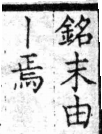 銘末由
丨焉